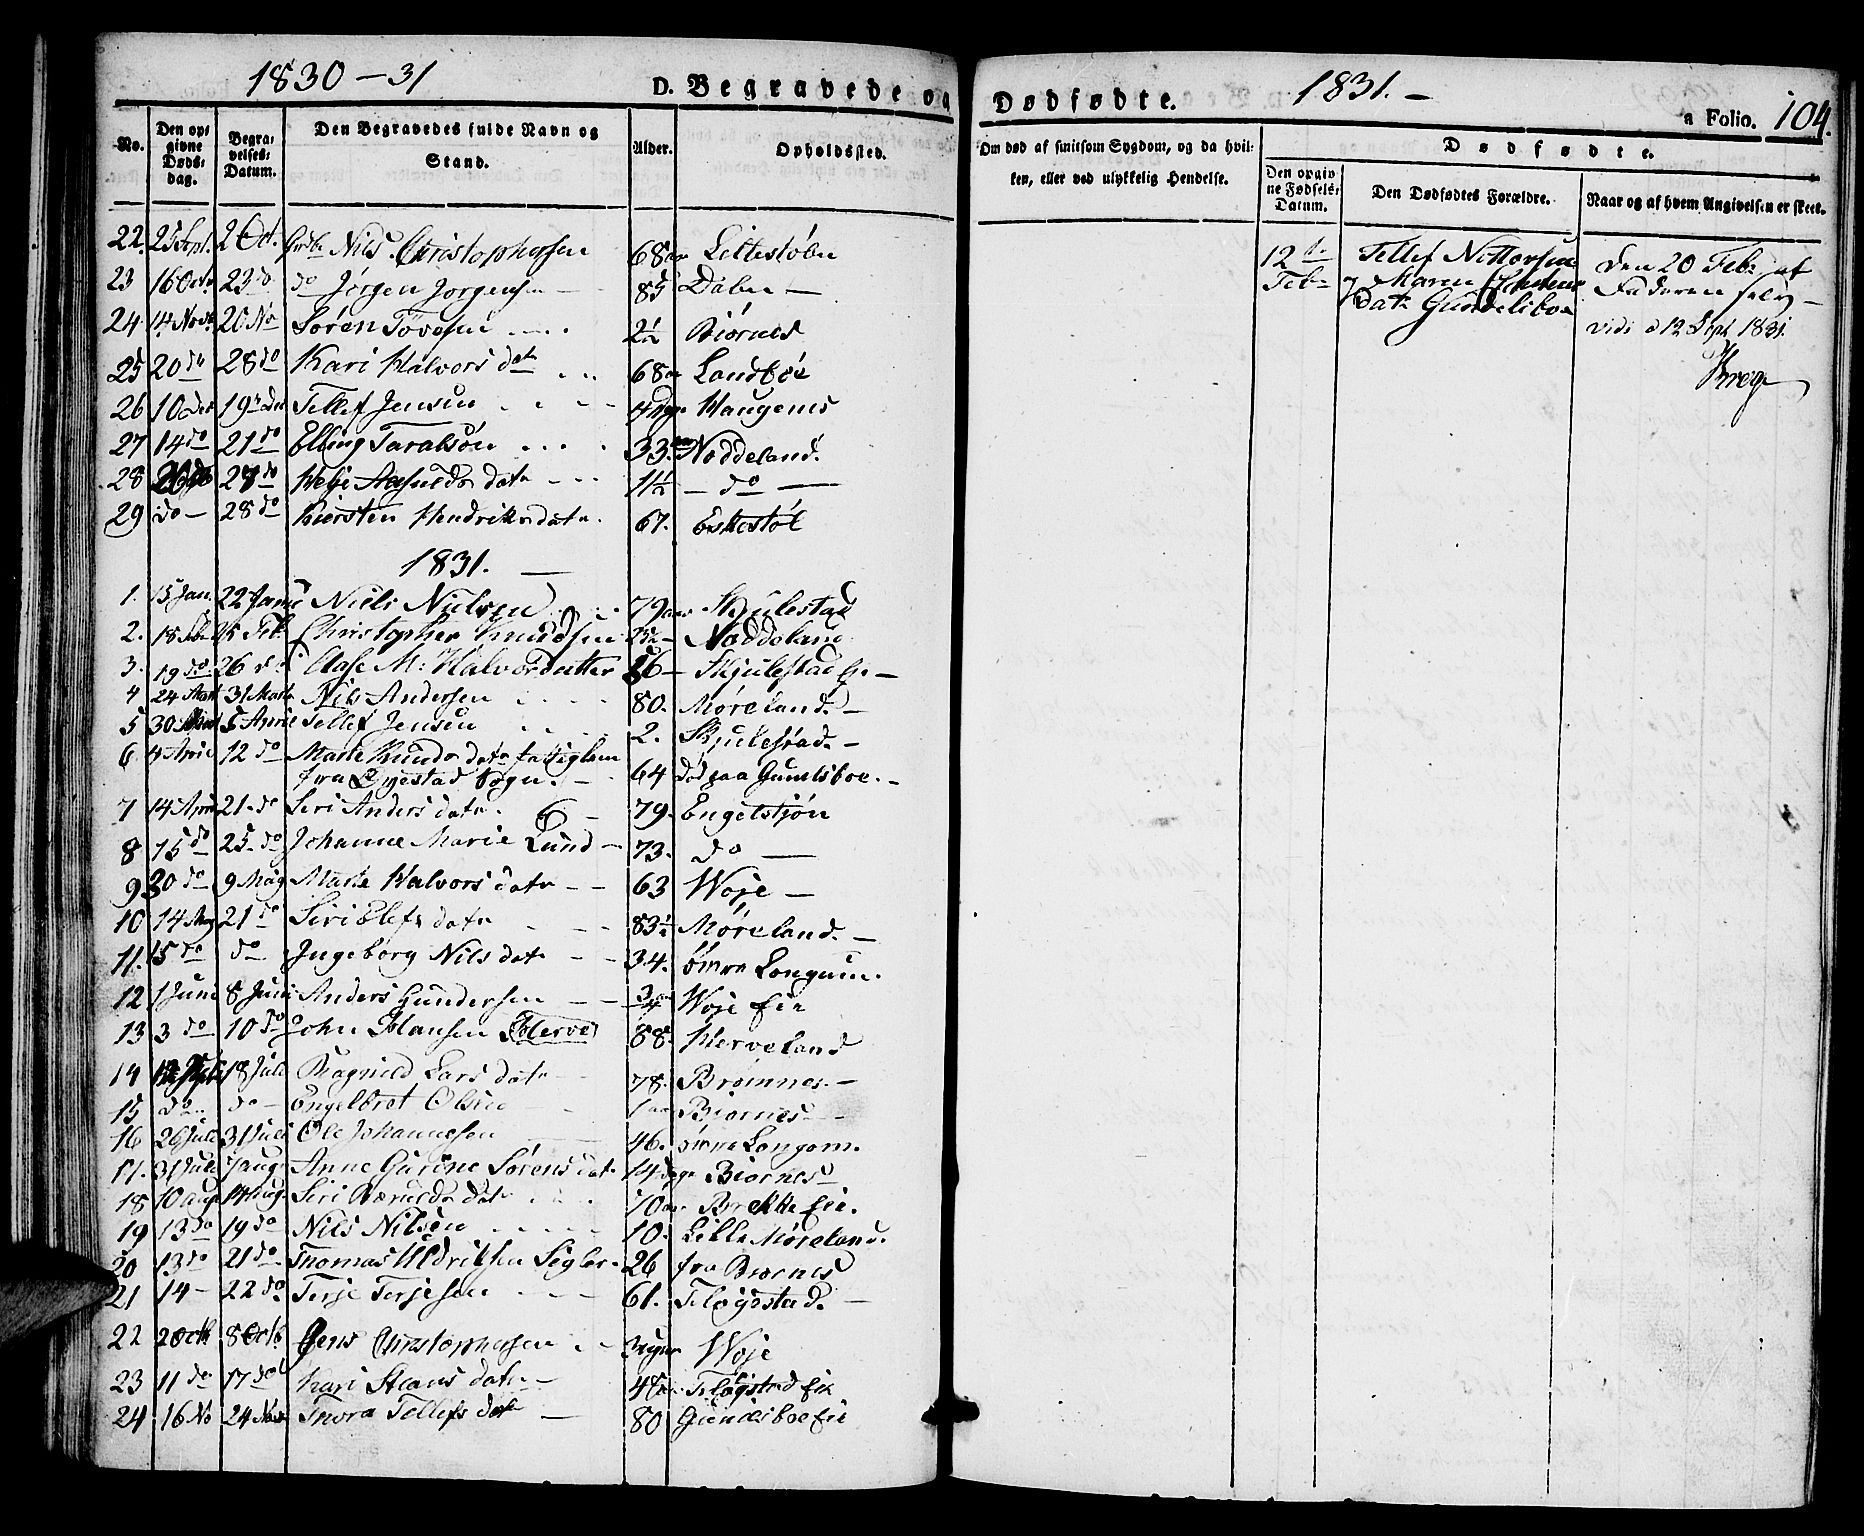 1830-31
D. Begravede og
No.
Den opgivne Dødsdag.
Begravelses-Datum.
Den Begravedes fulde Navn og Stand.
Alder.
Opholdssted.
22. 25 Sept. 2 Oct. Nils Christophersen 68 aar
23 16 Octo 23 do do Jørgen Jorgensen 85 Dalen
24. 14 Novb 20 No Søren Tovesen 2½ Biørnes
25 20 do 28 do Kari Halvors datr 68 aar Landbøe
26 10 Des 19 Des Tellef Jensen 4 Dage Haugenes
27 14 do 21 do Elling Taralsøn 33 aar Noddeland.
28 28 do datr 1½ do
29 do 28 do Kiersten Hendriksdatr. 67. Eskestøl
1831.
1. 15 Jan. 22 Janu Niels Nielsen 79 aar Skjulestad
2. 18 Febr 25 Feb. Christopher Knudsen Noddeland
3. 19 do 26 do Aase M: Halvordatter 26 Skjulestad
4 24 Mart 31 Marts Nils Andersen 80. Møreland.
5 30 Mart 5 April Tellef Jensen 2. Skjulestad.
6 4 April 12 do Marte Knuds datr fattiglem
fra Øyestad Sogn. 64 død paa Gundelsboe.
7 14 April 21 do Siri Anders datr. 79. Engelstjøn
8 15 do 25. do Johanne Marie Lund 73. do
9 30 do 9 May Marte Halvors datr 63 Woje
10 14 May 21 do Siri Elefs datr 83½ Møreland.
11. 15 do do Ingeborg Nils datr 34. øvre Longum.
12 1 Juni 8 Juni Anders Gundersen ¾ Woje Eie
13 3 do 10 do John Hansen Herve 88. Herveland
14 18 Juli Ragnild Lars datr 78. Brømnes.
15 do do Engelbret Olsen 1 aar Biørnes
16 26 Juli 31 Juli Ole Johannesen 46. øvre Longom.
17. 31 Juli 7 aug. Anne Gurine Sørens datr 14 dage Biørnes
18 10 aug 14 aug. Siri datr 10 aar Brekke Eie.
19 13 do 19 do Nils Nilsen 10. Lille Møreland.
20 13 do 21 do Thomas Uldriksen Sigler 26 fra Biørnes
21 14 22 do. Terje Terjesen 61. Fløgstad.
22 2 Octb 8 Octb Jens Christophersen 3 uger Woje
23 11 do 17 do Kari Staus datr 48 aar Fløgstad Eie
24 16 No 24 Nov Thora Tellefs datr 80 Gundelsboe Eie
Dødfødte.
1831.
a Folio. 104.
Om død af smitsom Sygdom, og da hvilken, eller ved ulykkelig Hendelse.
Dødfødte.
Den opgivne Fødsels-Datum.
Den Dødfødtes Forældre.
Naar og af hvem Angivelsen er skeet.
12 te Febr
Tellef Nittersen
og Maren
Datr Gundelsboe
Den 20 Febr af
Faderen selv
vidi d 12 Sept 1831.